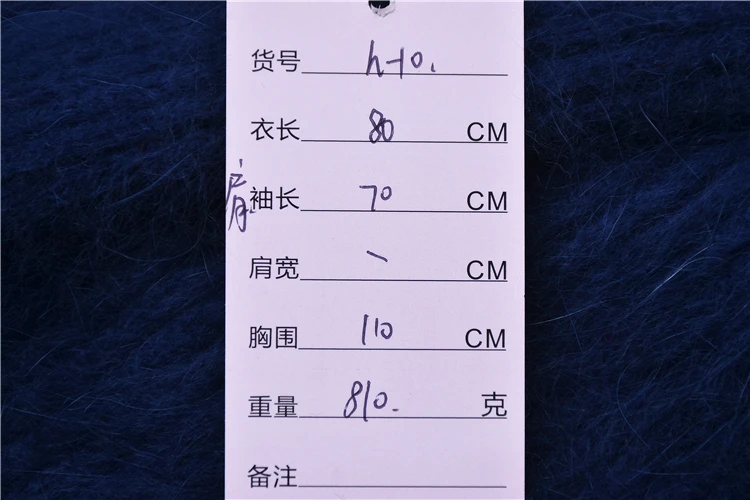 货号 h-10.
衣长 80 CM
肩袖长 70 CM
肩宽 - CM
胸围 110 CM
重量 810. 克
备注